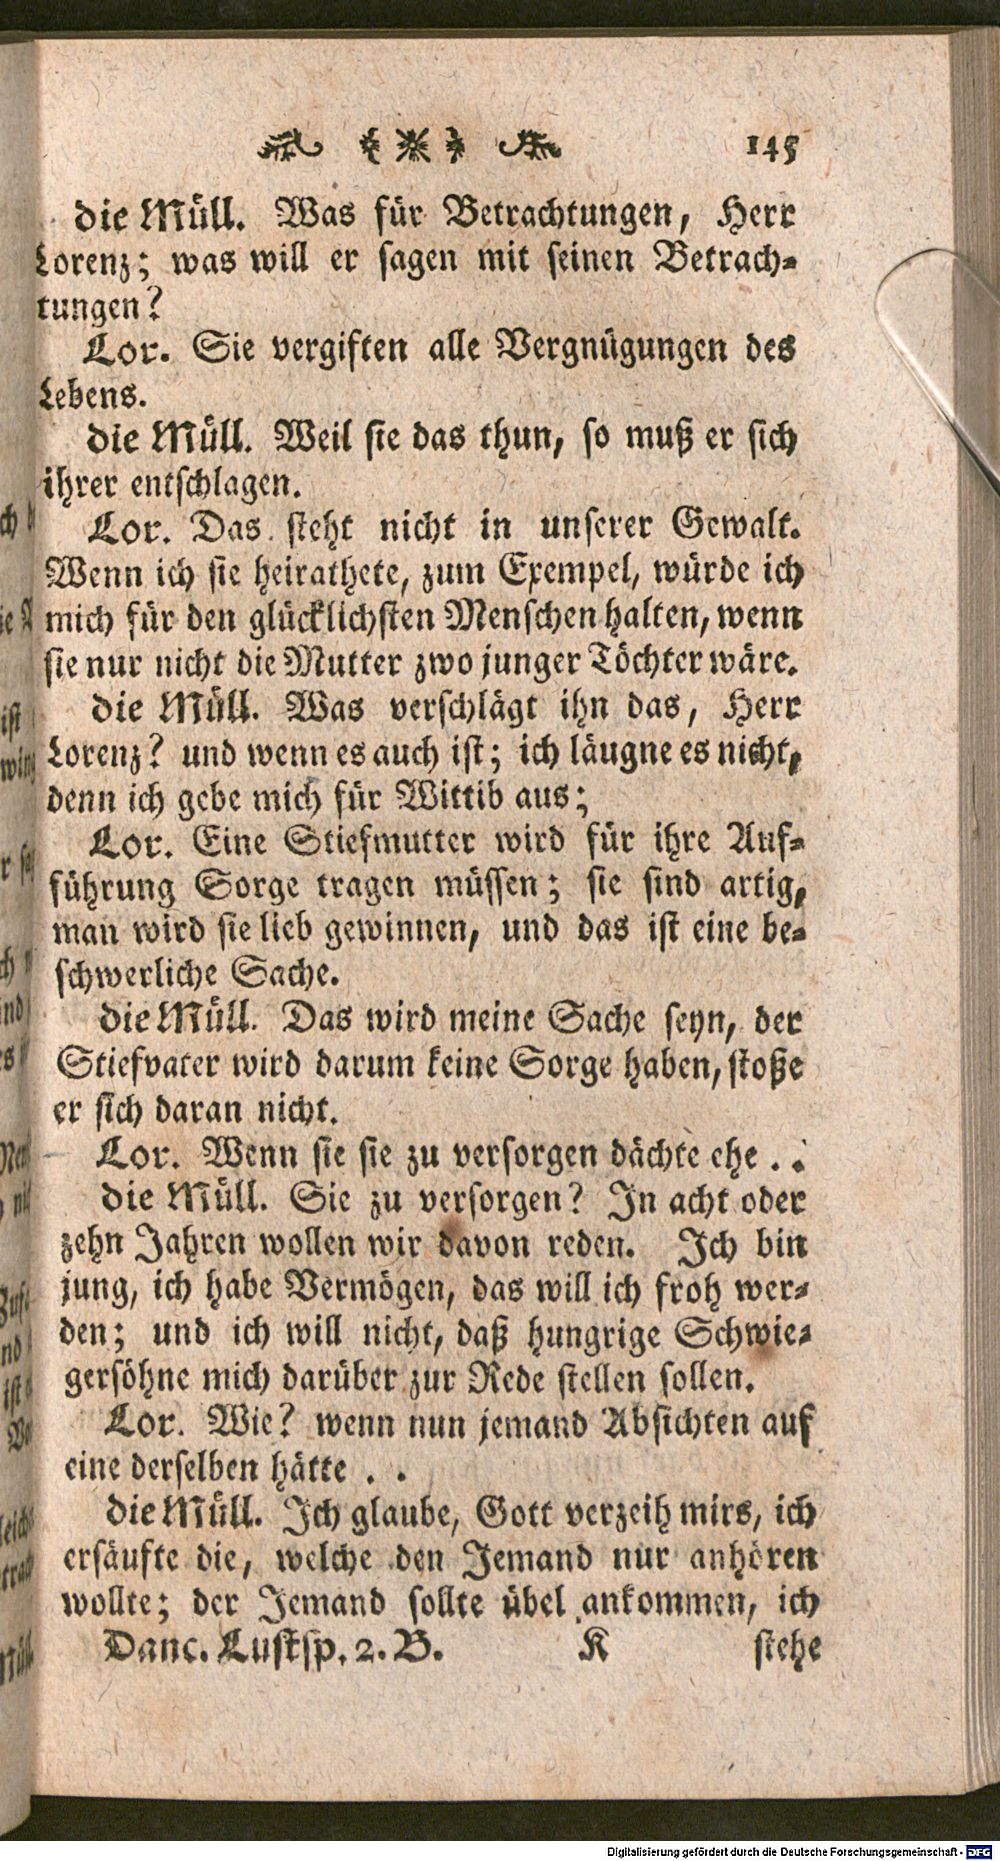 145
die Müll. Was für Betrachtungen, Herr
Lorenz; was will er sagen mit seinen Betrach-
tungen?
Lor. Sie vergiften alle Vergnügungen des
Lebens.
die Müll. Weil sie das thun, so muß er sich
ihrer entschlagen.
Lor. Das steht nicht in unserer Gewalt.
Wenn ich sie heirathete, zum Exempel, würde ich
mich für den glücklichsten Menschen halten, wenn
sie nur nicht die Mutter zwo junger Töchter wäre.
die Müll. Was verschlägt ihn das, Herr
Lorenz? und wenn es auch ist; ich läugne es nicht,
denn ich gebe mich für Wittib aus;
Lor. Eine Stiefmutter wird für ihre Auf-
führung Sorge tragen müssen; sie sind artig,
man wird sie lieb gewinnen, und das ist eine be-
schwerliche Sache.
die Müll. Das wird meine Sache seyn, der
Stiefvater wird darum keine Sorge haben, stoße
er sich daran nicht.
Lor. Wenn sie sie zu versorgen dächte ehe . .
die Müll. Sie zu versorgen? In acht oder
zehn Jahren wollen wir davon reden. Ich bin
jung, ich habe Vermögen, das will ich froh wer-
den; und ich will nicht, daß hungrige Schwie-
gersöhne mich darüber zur Rede stellen sollen.
Lor. Wie? wenn nun jemand Absichten auf
eine derselben hätte . .
die Müll. Ich glaube, Gott verzeih mirs, ich
ersäufte die, welche den Jemand nur anhören
wollte; der Jemand sollte übel ankommen, ich
Danc. Lustsp. 2. B. K stehe
Digitalisierung gefördert durch die Deutsche Forschungsgemeinschaft - DFG